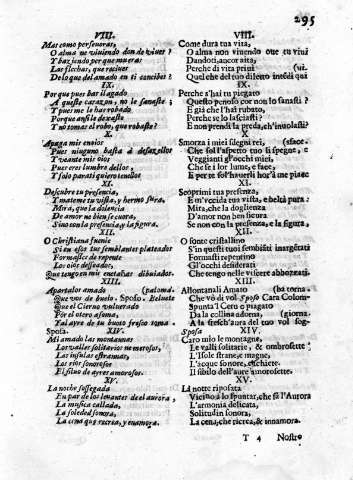 295
VIII.
Mas como perseueras,
O alma no viuiendo don de viues?
Y haziendo por que mueras
Las flechas, que reciues
De lo que del amado en ti concibes?
IX.
Por que pues has llagado
A queste corazon, no le sanaste;
Y pues me le has robado
Porque ansi le dexaste
Y no tomas el robo, que robaste?
X.
Apaga mis enoios
Pues ninguno basta à desazellos
Y veante mis oios
Pues eres lumbre dellos,
Y solo parati quiero tenellos
XI.
Descubre tu presencia,
Y mateme tu vista, y hermosura,
Mira, que la dolencia
De amor no bien se cura,
Sino con la presencia, y la figura.
XII.
O Christiana fuente
Si en esos tus semblantes plateados
Formasses de repente
Los oios desseados,
Que tengo en mis entrañas dibuiados.
XIII.
Apartalos amado (paloma.
Que voy de buelo. Sposo. Bueluete
Que el Cieruo vulnerado
Por el otero asoma,
Y al ayre de tu buelo fresco toma.
Sposa. XIV.
Mi amado las montannas
Los valles solitarios nemorosos,
Las insulas estrannas,
Los rios sonorosos
El siluo de ayres amorosos.
XV.
La noche sossegada
En par de los leuantes de el aurora,
La musica callada,
La soledad sonora,
La cena que recrea, y enamora.
VIII.
Come dura tua vita,
O alma non viuendo oue tu viui
Dandoti, ancor aita,
Perche di vita priui (ui.
Quel che del tuo diletto in te di qui
IX.
Perche s'hai tu piegato
Questo penoso cor non lo sanasti?
E già che l'hai rubato,
Perche se lo lasciasti?
E non prendi la preda, ch'inuolasti?
X.
Smorza i miei sdegni rei, (sface.
Che sol l'aspetto tuo li spegne, e
Veggianti gl'occhi miei,
Che sei lor lume, e face,
E per te sol hauerli hor'à me piace
XI.
Scoprimi tua presenza,
E m'vccida tua vista, e beltà pura:
Mira, che la doglienza
D'amor non ben sicura
Se non con la presenza, e la figura.
XII.
O fonte cristallino
S'in questi tuoi sembianti inargetati
Formasti repentino
Gl'occhi desiderati
Che tengo nelle viscere abbozzati.
XIII.
Allontanali Amato (ba torna.
Che vò di vol. Sposo Cara Colom-
Spunta'l Ceruo piagato
Da la collina adorna, (giorna.
A la fresch'aura del tuo vol sog-
Sposa XIV.
Caro mio le montagne,
Le valli solitarie, & ombrosette
L'Isole strane, e magne,
L'acque sonore, e schiette,
Il sibilo dell'aure amorosette.
XV.
La notte riposata
Vicino à lo spuntar, che fà l'Aurora
L'armonia delicata,
Solitudin sonora,
La cena, che ricrea, & innamora.
T 4 Nostro